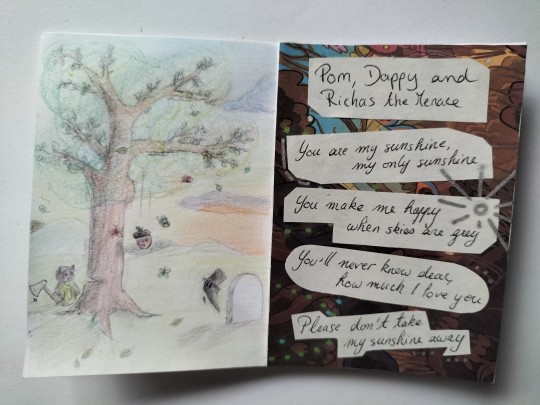 Pom, Dappy and
Richas the Menace
You are my sunshine,
my only sunshine
You make me happy
when skies are grey
You'll never know dear,
how much I love you
Please don't take
my sunshine away